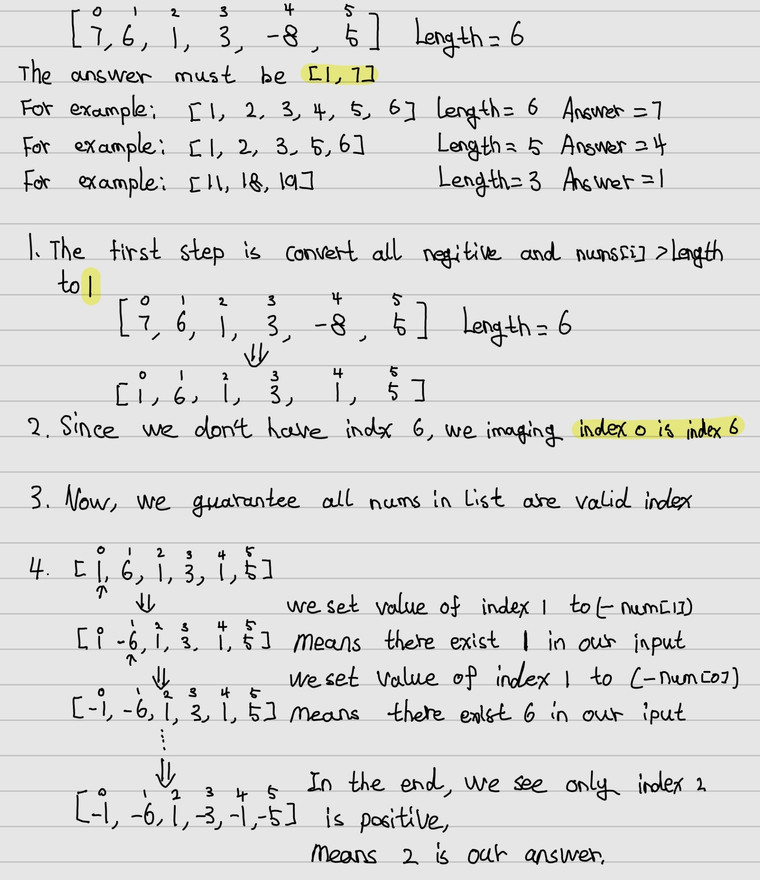 0 1 2 3 4 5
[7, 6, 1, 3, -8, 5] Length = 6
The answer must be [1, 7]
For example: [1, 2, 3, 4, 5, 6] Length = 6 Answer = 7
For example: [1, 2, 3, 5, 6] Length = 5 Answer = 4
For example: [11, 18, 19] Length = 3 Answer = 1
1. The first step is convert all negitive and nums[i] > length
to 1
0 1 2 3 4 5
[7, 6, 1, 3, -8, 5] Length = 6
⇓
0 1 2 3 4 5
[1, 6, 1, 3, 1, 5]
2. Since we don't have indx 6, we imaging index 0 is index 6
3. Now, we guarantee all nums in list are valid index
0 1 2 3 4 5
4. [1, 6, 1, 3, 1, 5]
↑
⇓ we set value of index 1 to (-num[1])
0 1 2 3 4 5
[1 -6, 1, 3, 1, 5] means there exist 1 in our input
↑
⇓ we set value of index 1 to (-num[0])
0 1 2 3 4 5
[-1, -6, 1, 3, 1, 5] means there exist 6 in our iput
⇓ In the end, we see only index 2
0 1 2 3 4 5
[-1, -6, 1, -3, -1, -5] is positive,
means 2 is our answer.